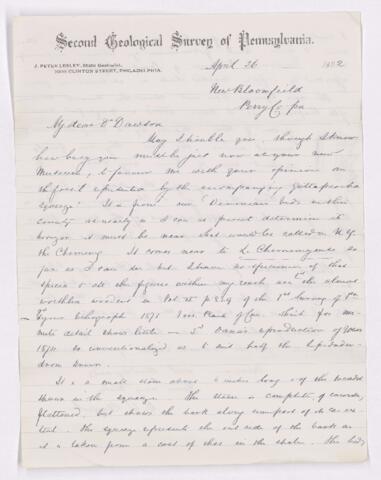 Second Geological Survey of Pennsylvania.
J. PETER LESLEY, State Geologist,
1008 CLINTON STREET, PHILADELPHIA.
April 26 1882
New Bloomfield
Perry Co Pa
My dear Dr Dawson
May I trouble you, though I know
how busy you must be just now at your new
Museum, to favour me with your opinion on
the fossil represented by the accompanying gutta percha
squeeze? It is from our Devonian beds in this
county as nearly as I can at present determine its
horizon it must be near what would be called in N.Y.
the Chemung. It comes near to L. Chemungense so
far as I can see but I have no specimen of that
species & all the figures within my reach are the almost
worthless woodcut in Vol of the 1st Survey of Pa
mi-
nute detail shows little Dana's reproduction of
so conventionalized as to suit half the Lepidoden-
dron known.
It is a small stem about 6 inches long & of the
shown in the squeeze. The stem is complete, of course,
flattened, but shows the bark along some part of its ex-
tent. The squeeze represents the out side of the bark as
it is taken from a cast of that in the shale. The